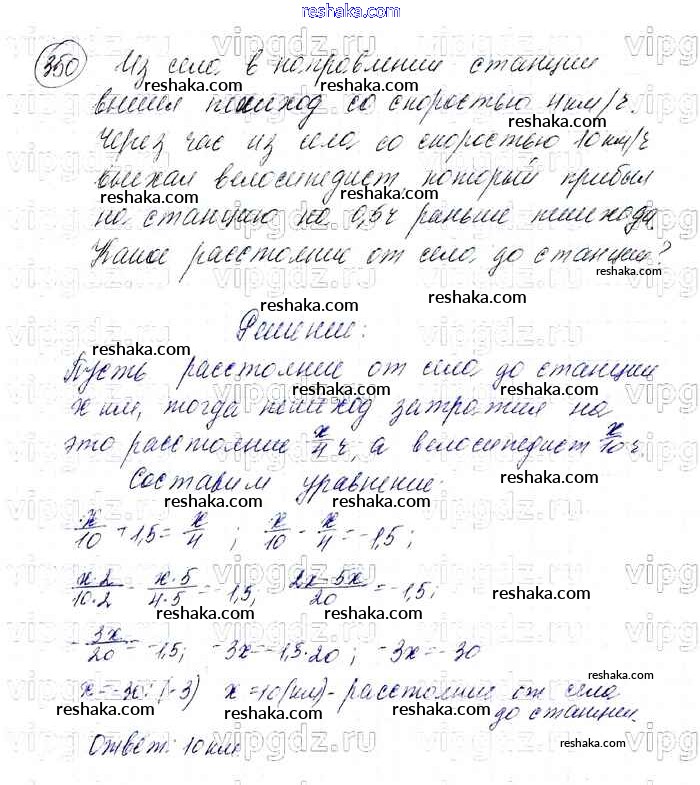 reshaka.com
350 Из села в направлении станции
вышел пешеход со скоростью 4 км/ч.
Через час из села со скоростью 10 км/ч
выехал велосипедист который прибыл
на станцию на 0,5 ч раньше пешехода.
Какое расстояние от села до станции?
Решение:
Пусть расстояние от села до станции
x км, тогда пешеход затратил на
это расстояние x/4 ч, а велосипедист x/10 ч.
Составим уравнение:
x/10 + 1,5 = x/4 ; x/10 - x/4 = -1,5;
x·2/10·2 - x·5/4·5 = -1,5; 2x-5x/20 = -1,5;
-3x/20 = -1,5; -3x = -1,5·20; -3x = -30
x = -30:(-3) x = 10 (км) - расстояние от села
до станции.
Ответ: 10 км